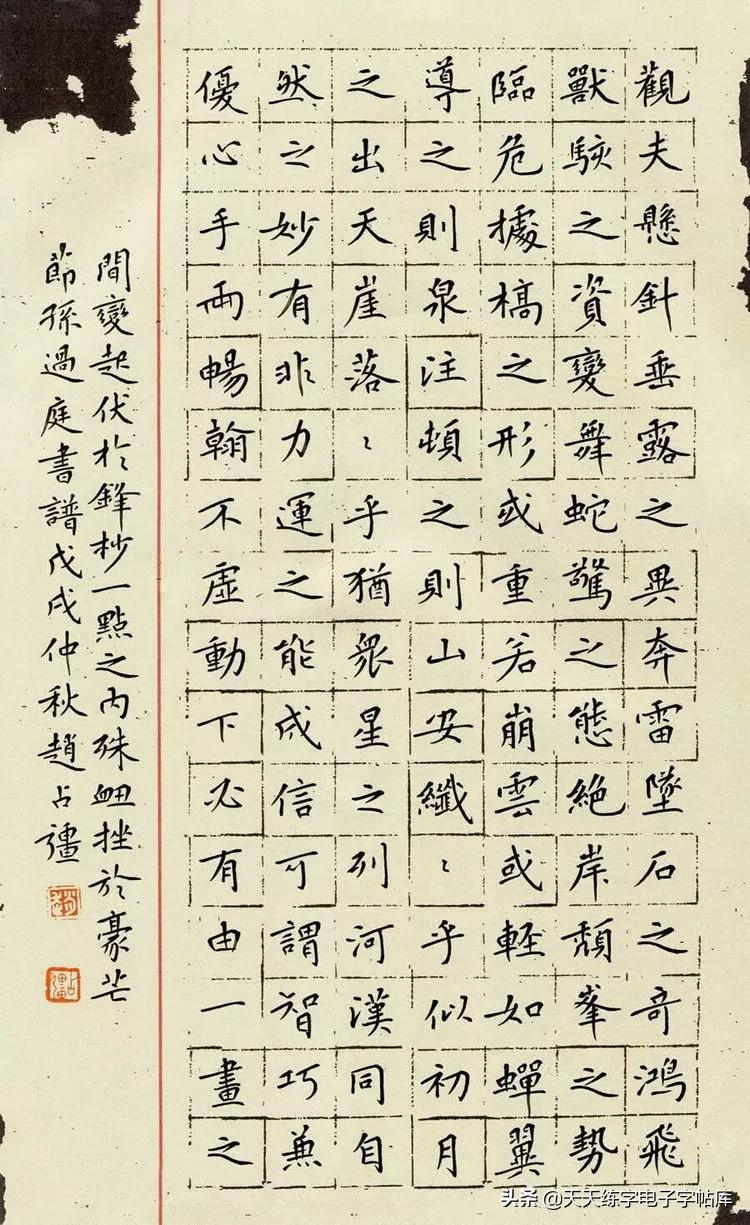 觀夫懸針垂露之異奔雷墜石之奇鴻飛
獸駭之資變舞蛇驚之態絕岸頹峯之勢
臨危據槁之形或重若崩雲或輕如蟬翼
導之則泉注頓之則山安纖〻乎似初月
之出天崖落〻乎猶眾星之列河漢同自
然之妙有非力運之能成信可謂智巧兼
優心手兩暢翰不虛動下必有由一畫之
間變起伏於鋒杪一點之內殊衄挫於豪芒
節孫過庭書譜戊戌仲秋趙占彊
头条 @天天练字电子字帖库